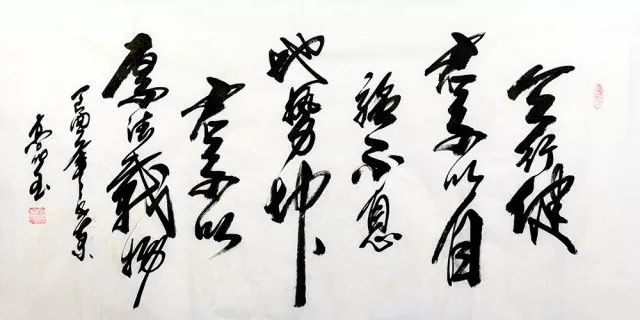 天行健
君子以自
強不息
地勢坤
君子以
厚德載物
丁酉年